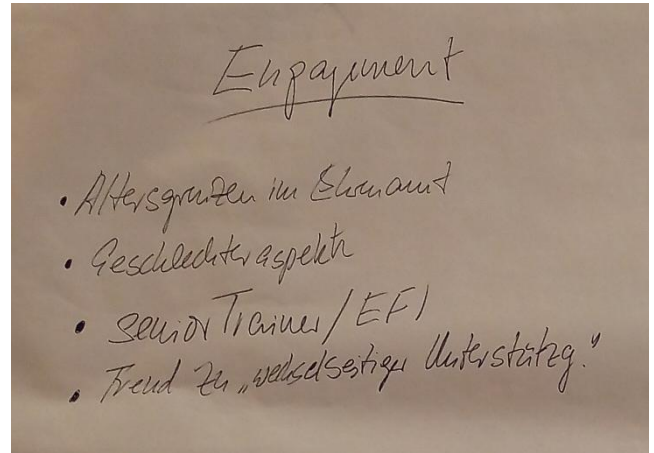 Engagement
• Altersgrenzen im Ehrenamt
• Geschlechteraspekte
• seniorTrainer/EFI
• Trend zu „wechselseitiger Unterstützg."